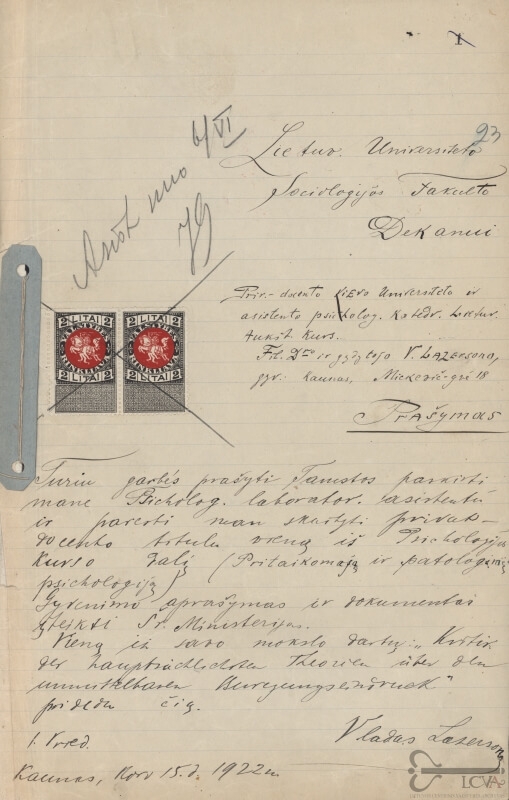 1
23
6/VI
Lietuv. Universiteto
Sociologijos Fakulto
Dekanui
Priv.-docento Kievo Universiteto ir
asistento psicholog. Katedr. Lietuv.
Aukšt. Kurs.
Fil. D-ro ir gydytojo V. Lazersono,
gyv. Kaunas, Mickevič-gvė 18
Prašymas
2 LITAI 2
2 LITAI 2
2 LITAI 2
2 LITAI 2
Turiu garbės prašyti Tamstos paskirti
mane Psicholog. laborator. asistentu
ir pavesti man skaityti privat-
docento titulu vieną iš Psichologijos
kurso dalį (Pritaikomąją ir patologinę
psichologiją)
Gyvenimo aprašymas ir dokumentai
įteikti Šv. Ministerijai.
Vieną iš savo mokslo darbų: „Kritik
der hauptsächlichsten Theorien über den
unmittelbaren Bewegungseindruck"
pridedu čia.
Vladas Lazersonas
1. Priėd.
Kaunas, Kovo 15 d. 1922 m.
LCVA